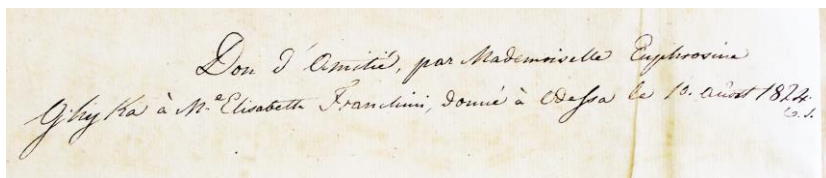 Don d'Amitié, par Mademoiselle Euphrosine
Ghyka à M.e Elisabeth Franchini, donné à Odessa le 10. août 1824.